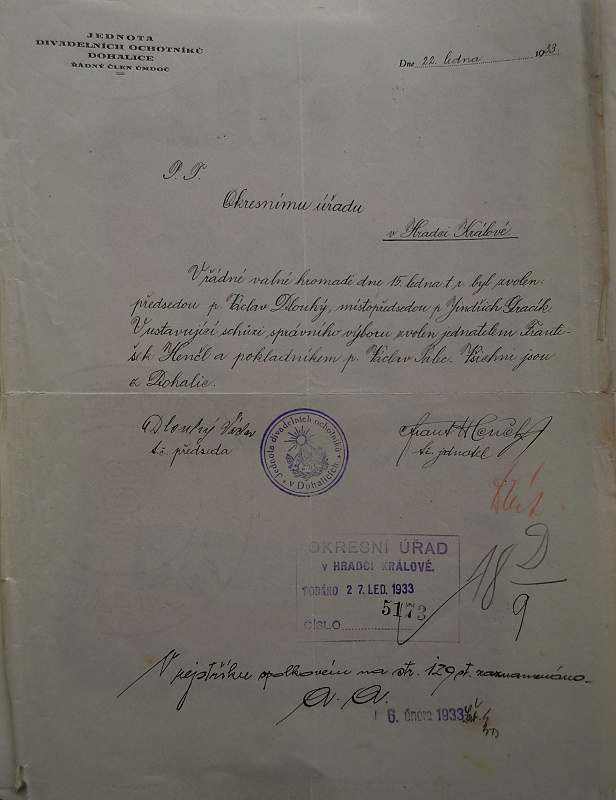 JEDNOTA
DIVADELNÍCH OCHOTNÍKŮ
DOHALICE
ŘÁDNÝ ČLEN ÚMDOČ
Dne 22. ledna 1933.
P. T.
Okresnímu úřadu
v Hradci Králové.
V řádné valné hromadě dne 15. ledna t. r. byl zvolen
předsedou p. Václav Dlouhý, místopředsedou p. Jindřich Gracík.
V ustavující schůzi správního výboru zvolen jednatelem Franti-
šek Henčl a pokladníkem p. Václav Palic. Všichni jsou
z Dohalic.
Dlouhý Václav
t. č. předseda
Jednota divadelních ochotníků
v Dohalicích
Frant Henčl
t. č. jednatel
OKRESNÍ ÚŘAD
V HRADCI KRÁLOVÉ.
PODÁNO 27. LED. 1933
ČÍSLO 5173
18 D
9
V rejstříku spolkovém na str. 129 st. zaznamenáno.
a. a.
6. února 1933